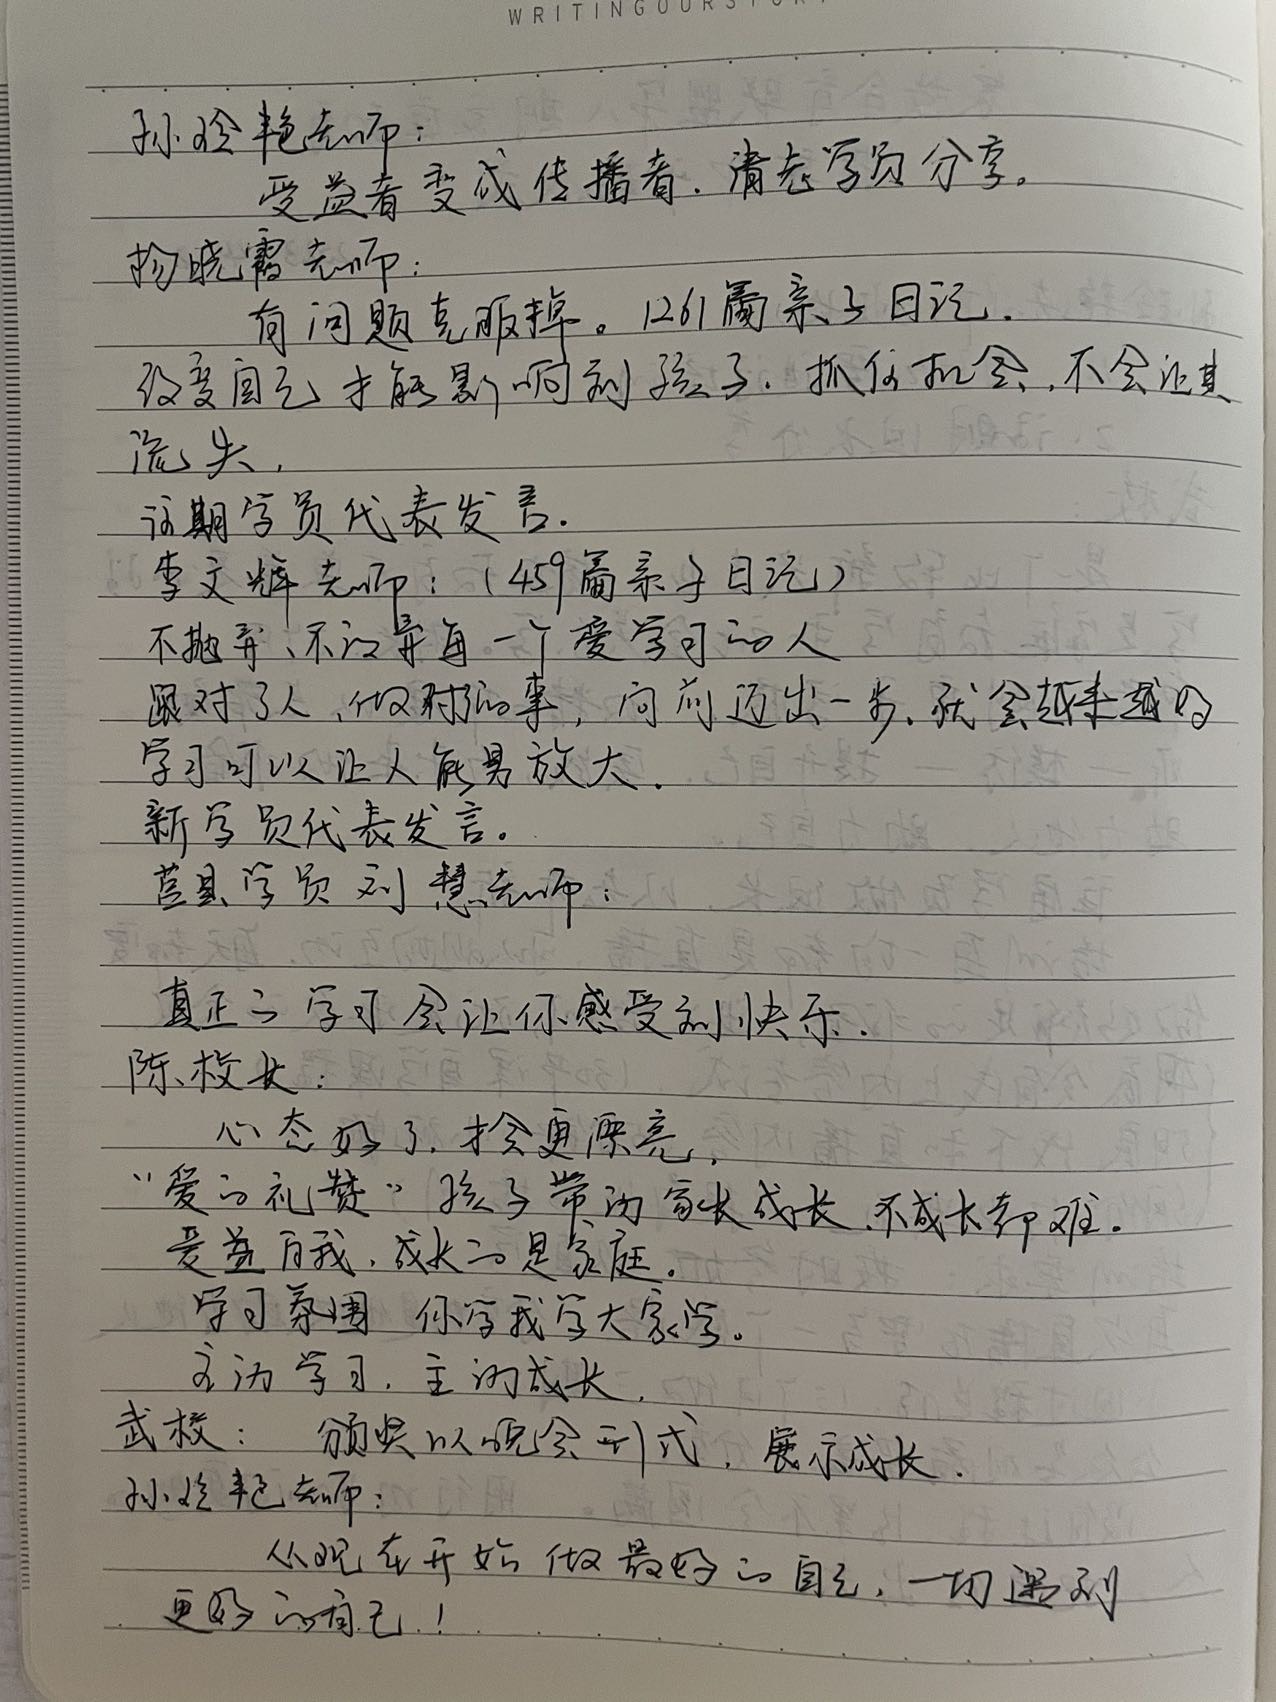 WRITINGOURSTORY
孙玲艳老师：
受益者变成传播者，清老学员分享。
杨晓霞老师：
有问题克服掉。1261篇亲子日记.
改变自己才能影响到孩子，抓住机会，不会让其
流失，
该期学员代表发言.
李文辉老师：（459篇亲子日记）
不抛弃、不放弃每一个爱学习的人
跟对了人，做对的事，向前迈出一步，就会越来越好
学习可以让人能量放大.
新学员代表发言。
莒县学员刘慧老师：
真正的学习会让你感受到快乐.
陈校长：
心态好了，才会更漂亮，
“爱的礼赞”孩子带动家长成长，不成长都难.
受益自我，成长的是家庭.
学习氛围 你学我学大家学。
主动学习，主动成长，
武校： 颁奖以晚会形式，展示成长.
孙玲艳老师：
从现在开始做最好的自己，一切遇到
更好的自己！